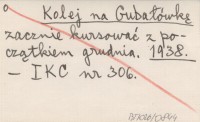 Kolej na Gubałówkę
zacznie kursować z po-
czątkiem grudnia. 1938.
– IKC nr 306.